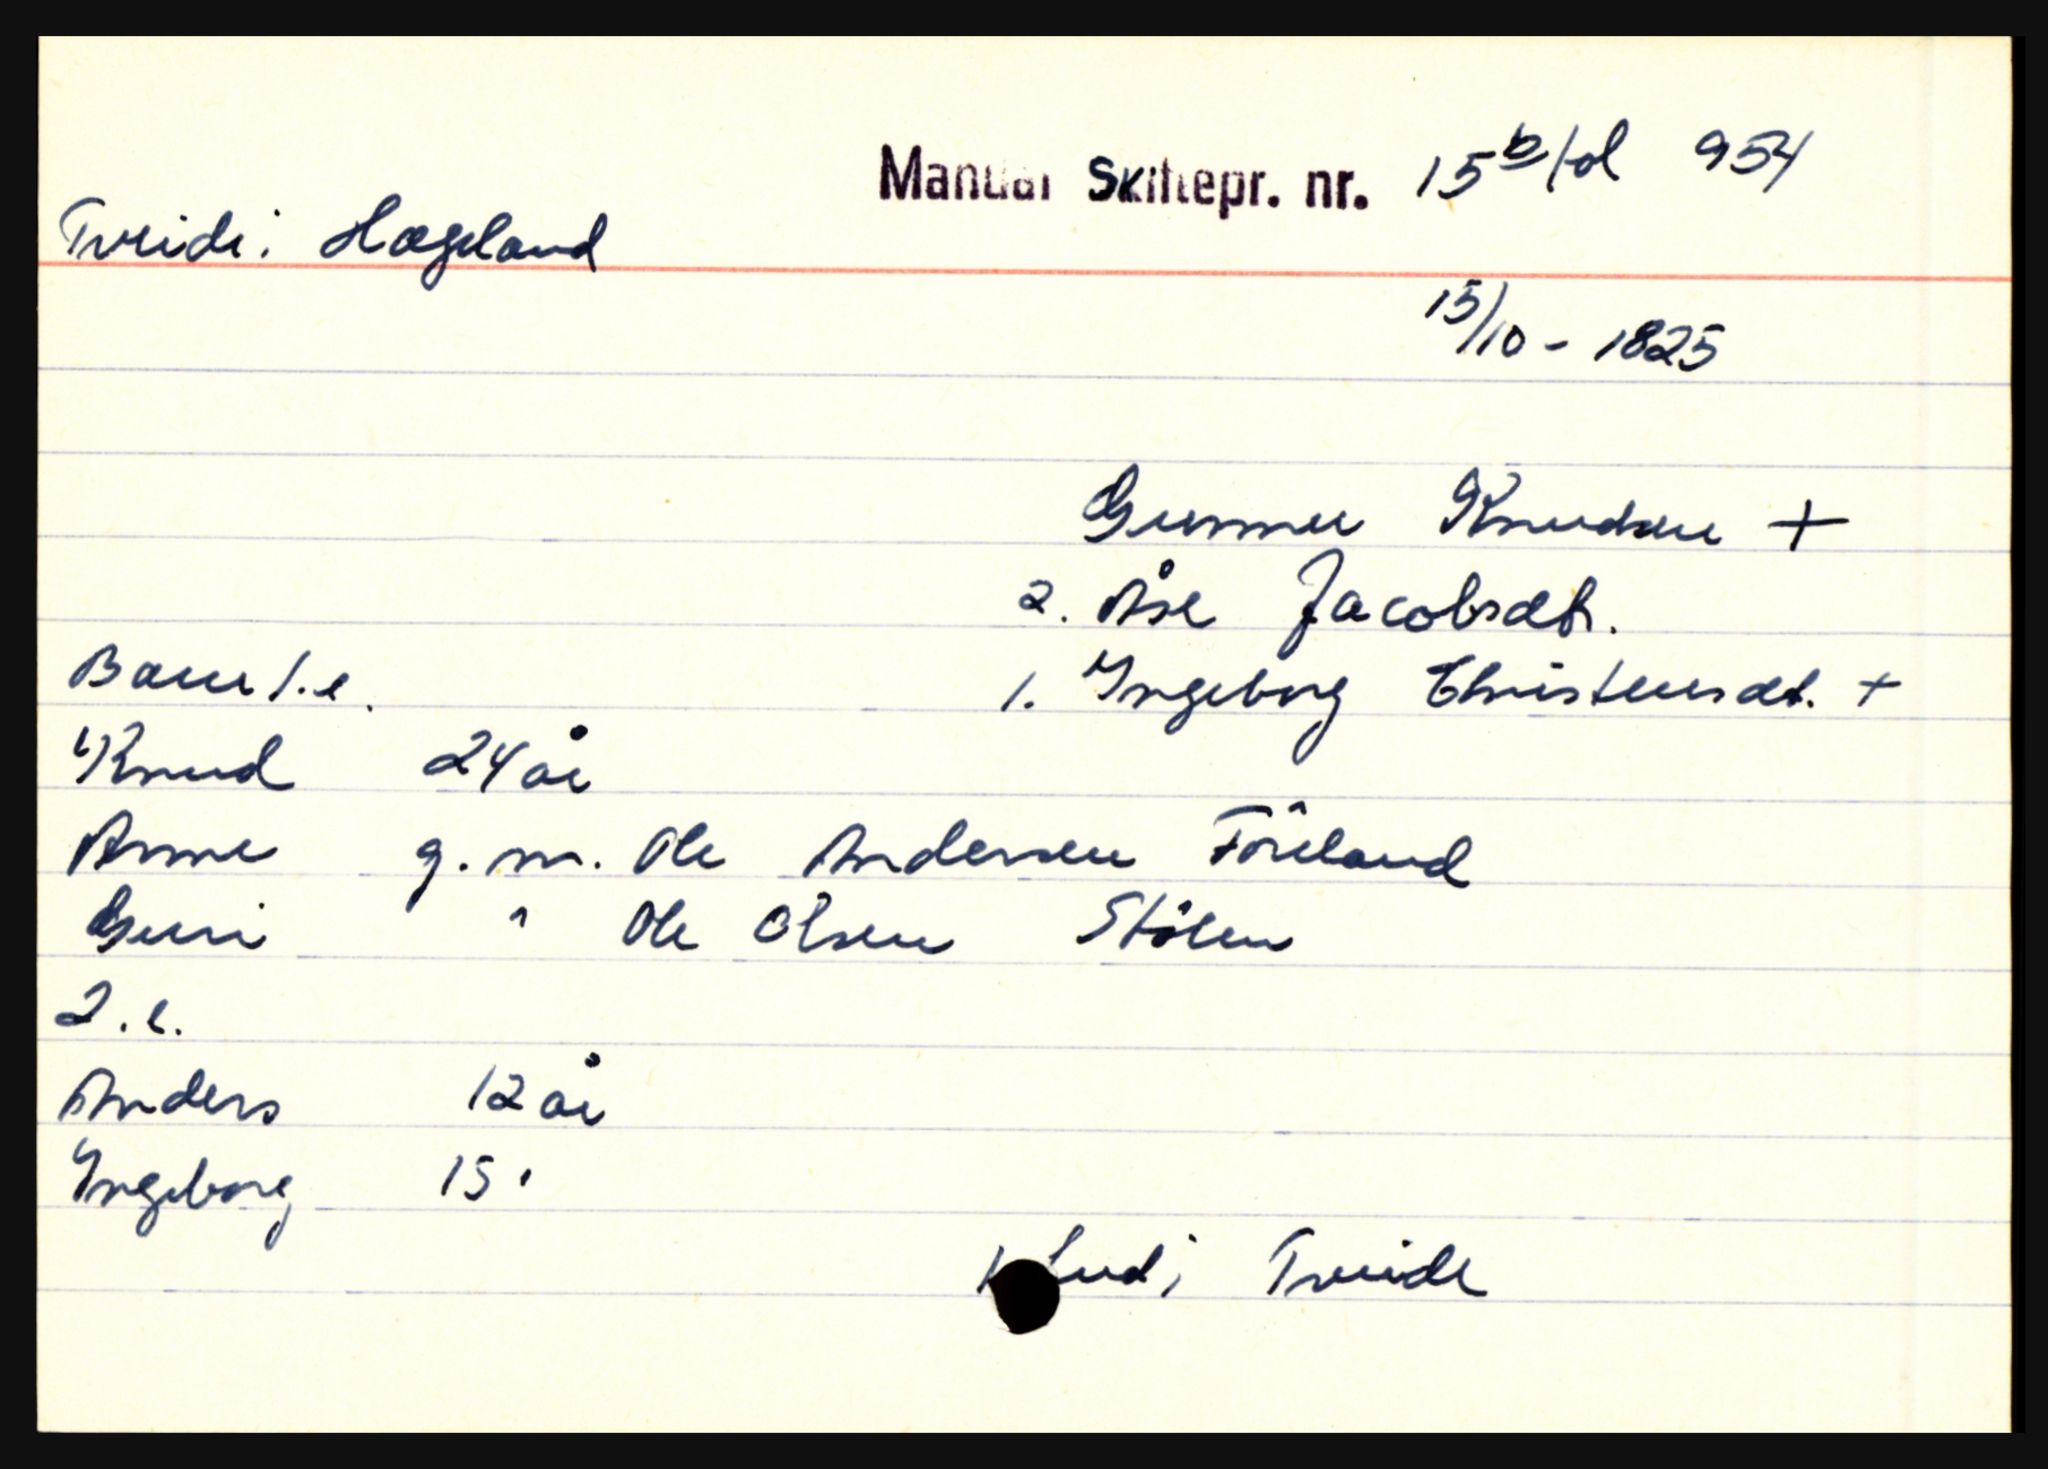 Manual Skiftepr. nr. 15b fol 954
Tveide i Hægeland
15/10 - 1825
Gunner Knudsen +
2. Åse Jacobsdt.
Barn 1. e. 1. Yngeborg Christensdt. +
Knud 24 år
Anne g. m. Ole Andersen Föreland
Guri " Ole Olsen Stølen
2. e.
Anders 12 år
Yngeborg 15 "
i Tveide